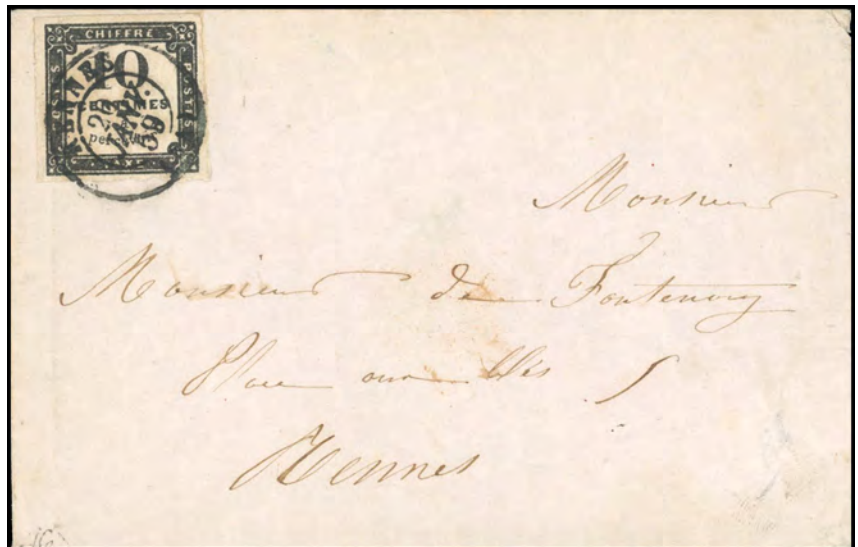 CHIFFRE
POSTES
10
CENTIMES
à
percevoir
POSTES
TAXE
RENNES
JANV.
59
Monsieur
Monsieur de Fontenay
Place aux Blés 5
Rennes